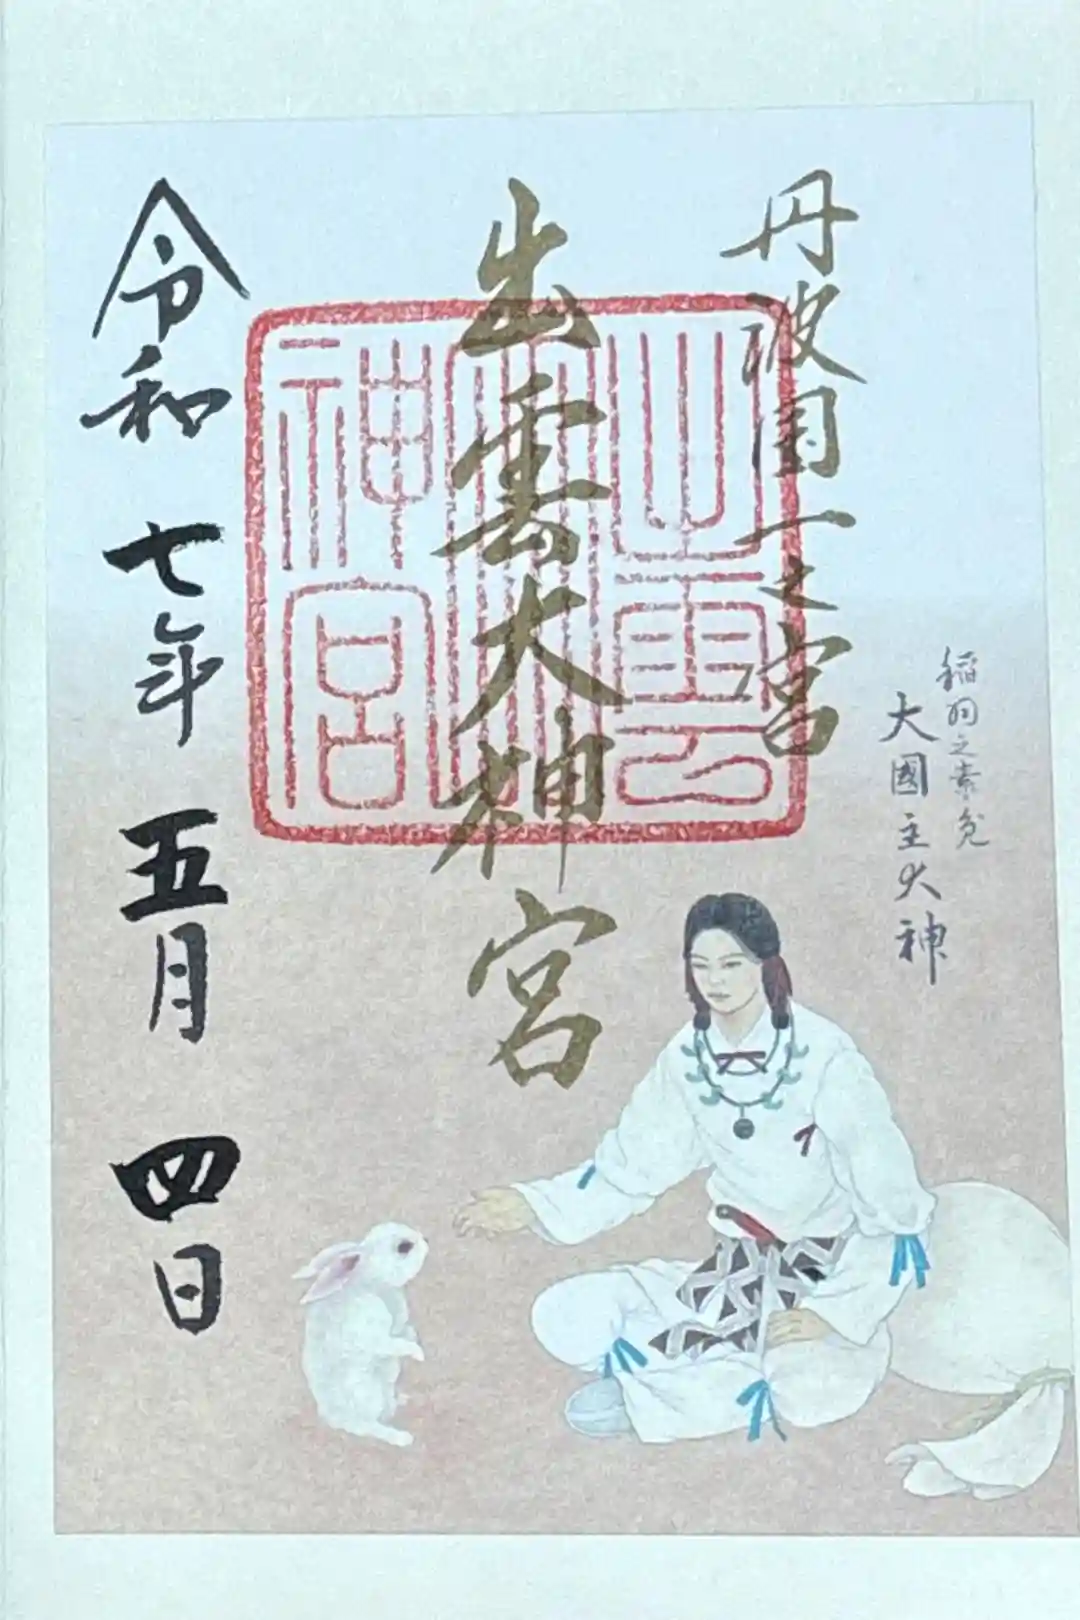 丹波国一之宮
稲羽之素兔
大國主大神
出雲大神宮
出雲
大
神宮
令和七年五月四日